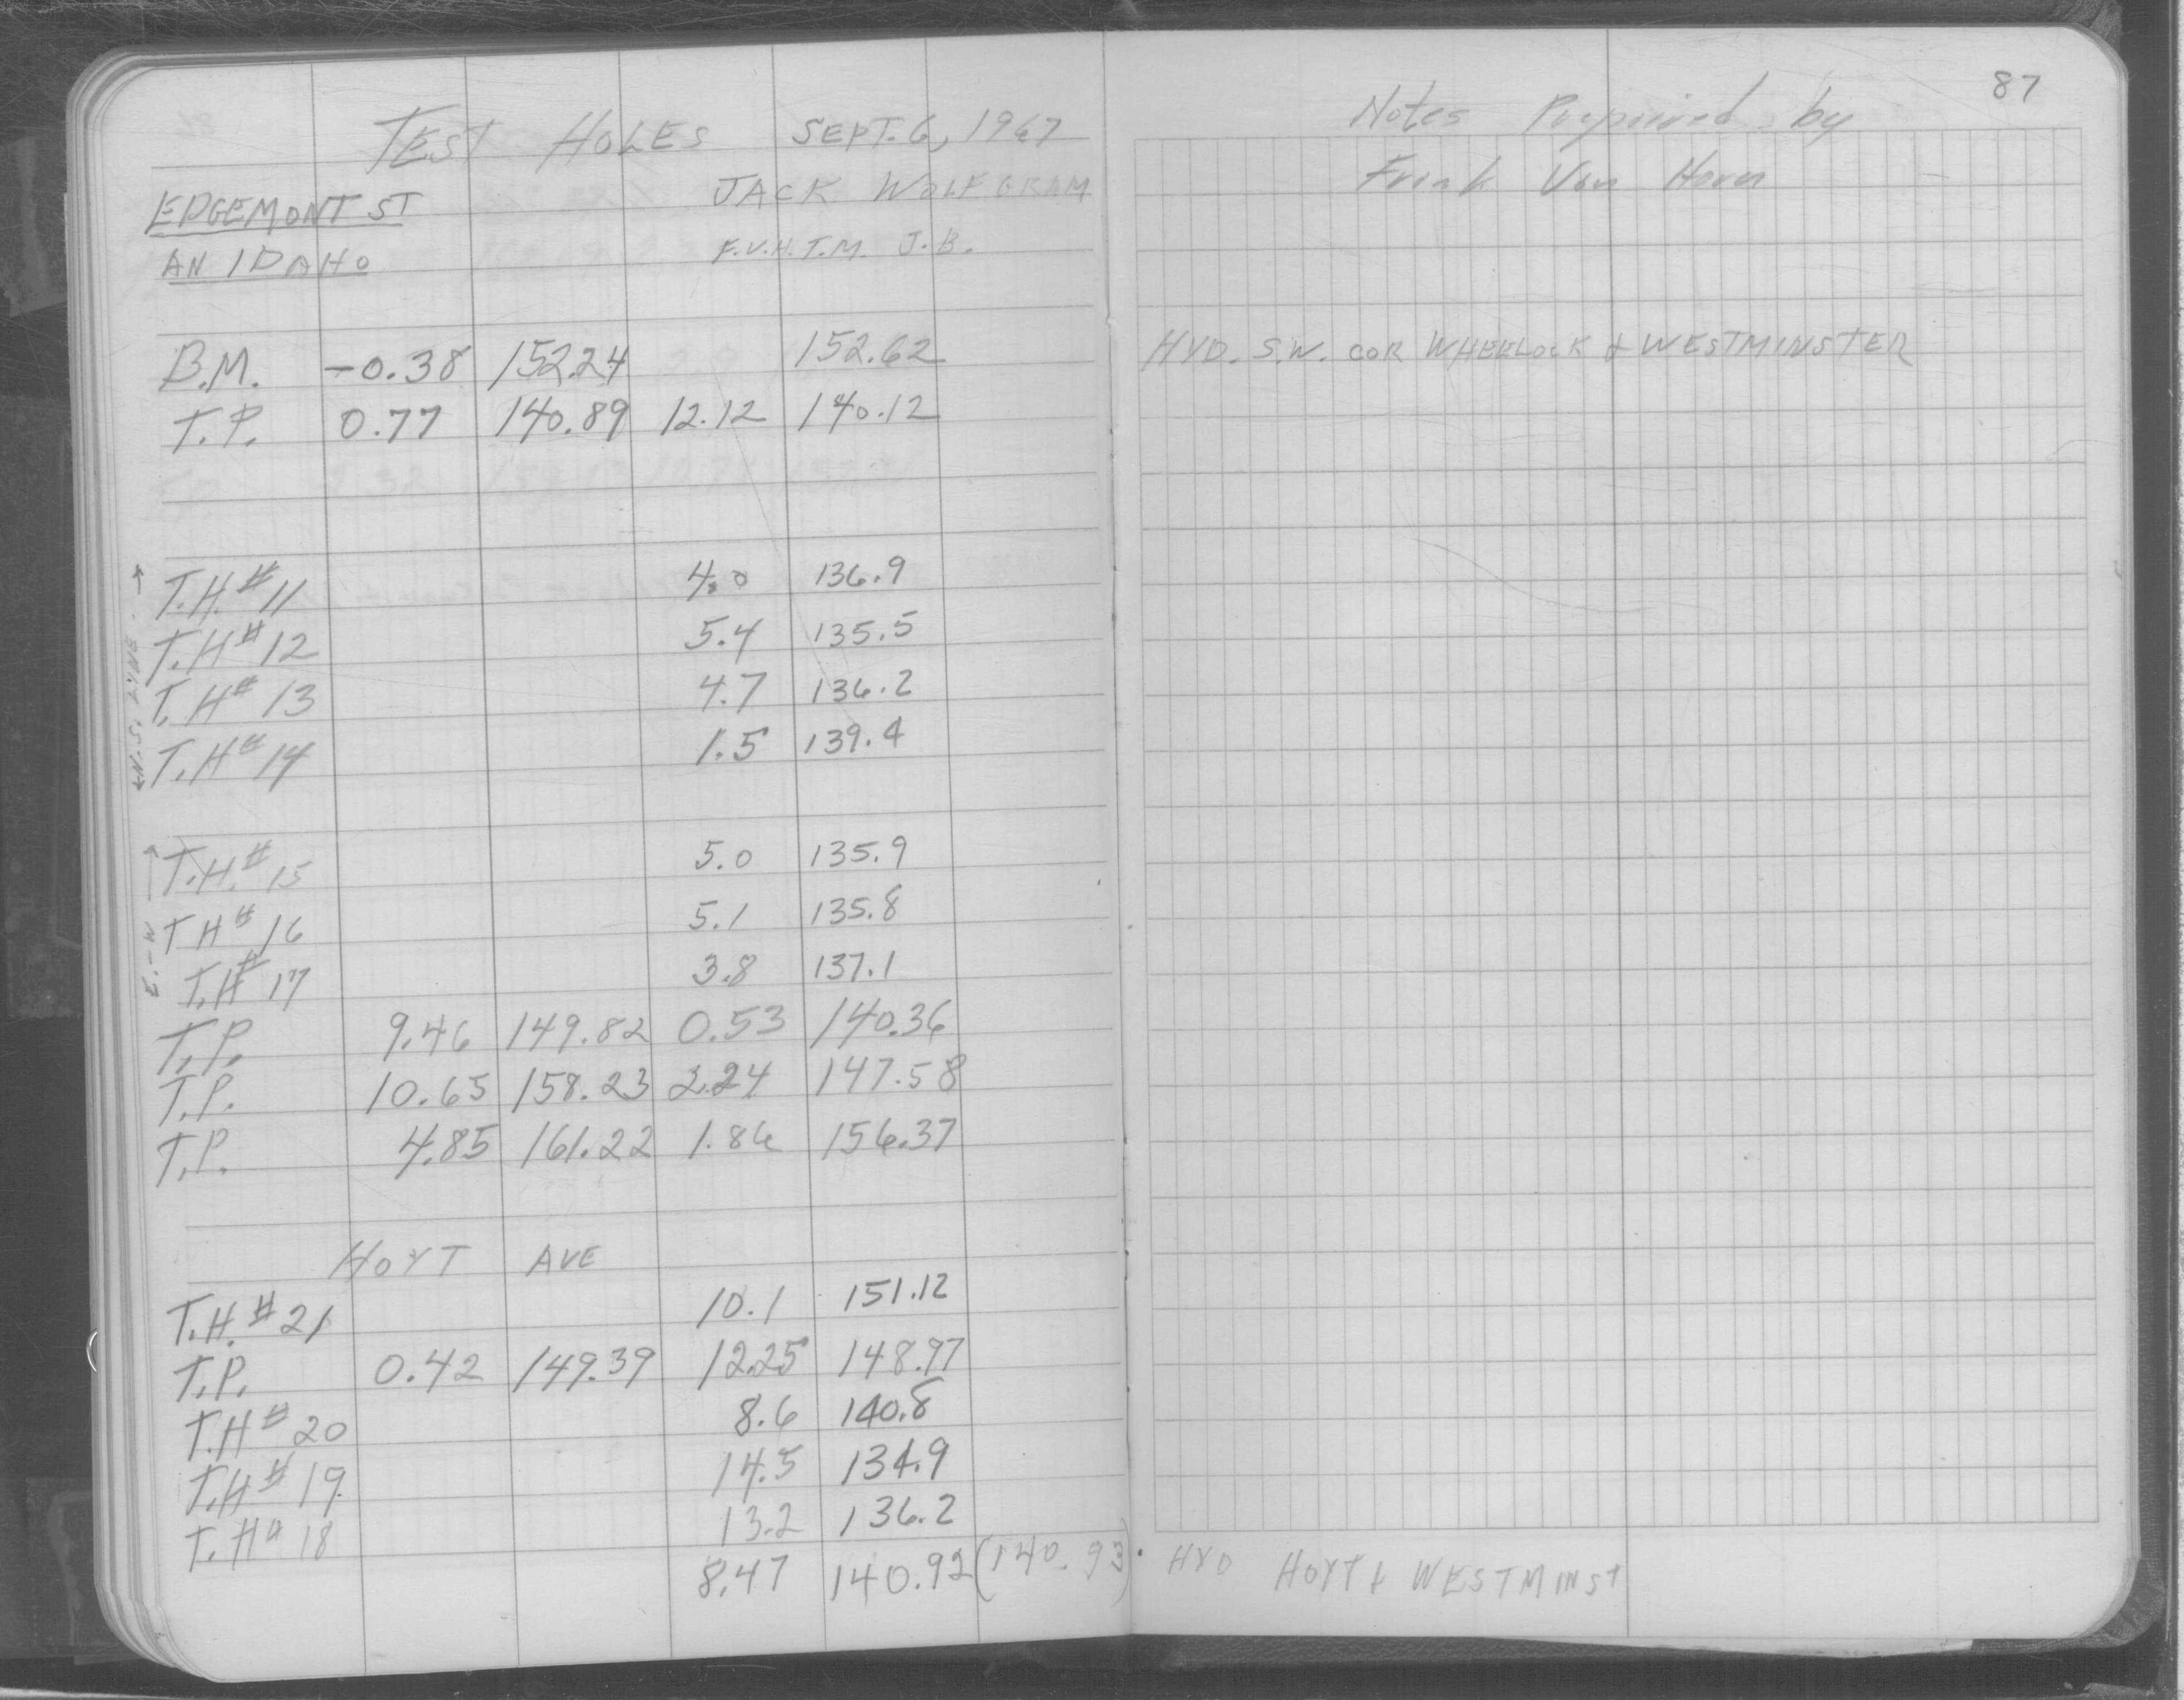 TEST HOLES SEPT. 6, 1967
EDGEMONT ST JACK WOLFGRAM
AN IDAHO F.V.H. T.M. J.B.
B.M. -0.38 152.24 152.62
T.P. 0.77 140.89 12.12 140.12
T.H. #11 4.0 136.9
T.H #12 5.4 135.5
T.H# 13 4.7 136.2
T.H# 14 1.5 139.4
N.S. LINE
T.H.# 15 5.0 135.9
T H# 16 5.1 135.8
T.H# 17 3.8 137.1
E.-W
T.P. 9.46 149.82 0.53 140.36
T.P. 10.65 158.23 2.24 147.58
T.P. 4.85 161.22 1.86 156.37
HOYT AVE
T.H. #21 10.1 151.12
T.P. 0.42 149.39 12.25 148.97
T.H# 20 8.6 140.8
T.H# 19 14.5 134.9
T.H# 18 13.2 136.2
8.47 140.92 (140.93)
87
Notes Prepared by
Frank Van Horn
HYD. S.W. COR WHEELOCK & WESTMINSTER
HYD HOYT & WESTMINST